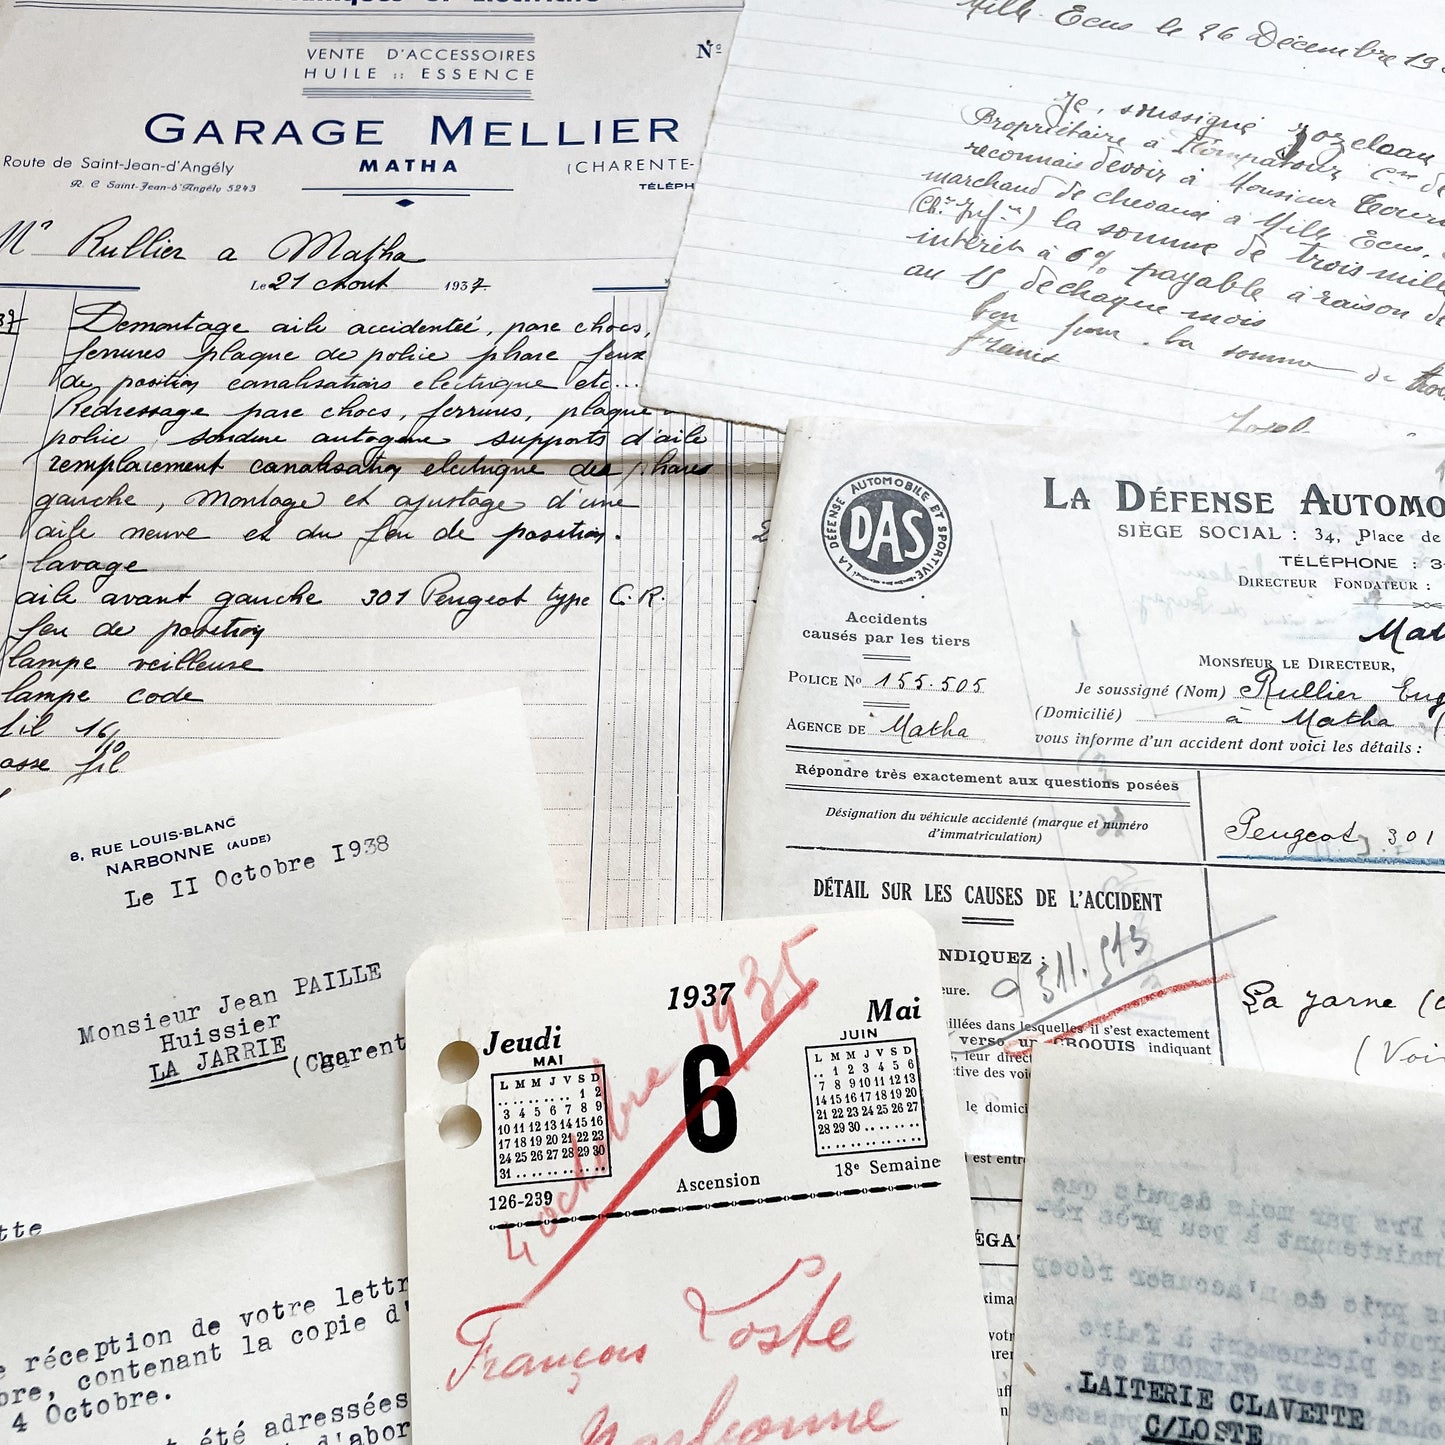 VENTE D'ACCESSOIRES
HUILE :: ESSENCE
Nº
GARAGE MELLIER
Route de Saint-Jean-d'Angély
MATHA
(CHARENTE-
R. C Saint-Jean-d'Angély 5243
TÉLÉPH
Mr Rullier a Matha
Le 21 Aout 1937
37
Demontage aile accidenteé, pare chocs,
ferrures plaque de police phare feux
de position canalisations electrique etc...
Redressage pare chocs, ferrures, plaque
police, soudure autogene supports d'aile
remplacement canalisation electrique des phares
gauche, Montage et ajustage d'une
aile neuve et du feu de position.
lavage
aile avant gauche 301 Peugeot type C.R.
feu de position
lampe veilleuse
lampe code
fil 16/10
asse fil
Mille Ecus le 26 Décembre 19
Je, soussigné Jozeleau
Propriétaire à
reconnais devoir à Monsieur
marchand de chevaux à Mille Ecus,
(Chte Infre) la somme de trois mille
intérêt à 6% payable à raison de
au 15 de chaque mois
bon pour la somme de
francs
LA DÉFENSE AUTOMOBILE ET SPORTIVE
DAS
LA DÉFENSE AUTOMO
SIÈGE SOCIAL : 34, Place de
TÉLÉPHONE : 3
DIRECTEUR FONDATEUR :
Accidents
causés par les tiers
Mat
MONSIEUR LE DIRECTEUR,
POLICE Nº 155.505
Je soussigné (Nom) Rullier Eug
(Domicilié) à Matha (
AGENCE DE Matha
vous informe d'un accident dont voici les détails :
Répondre très exactement aux questions posées
Désignation du véhicule accidenté (marque et numéro
d'immatriculation)
Peugeot 301
DÉTAIL SUR LES CAUSES DE L'ACCIDENT
NDIQUEZ :
eure.
illées dans lesquelles il s'est exactement
verso un CROQUIS indiquant
, leur direct
ctive des voi
le domici
est entre
ÉGA
La Jarne (
(Voir
8, RUE LOUIS-BLANC
NARBONNE (AUDE)
Le II Octobre I938
Monsieur Jean PAILLE
Huissier
LA JARRIE
(Charent
tte
e réception de votre lettr
bre, contenant la copie d'
4 Octobre.
t été adressées
t d'abor
1937
Jeudi
Mai
6
MAI
L M M J V S D
1 2
3 4 5 6 7 8 9
10 11 12 13 14 15 16
17 18 19 20 21 22 23
24 25 26 27 28 29 30
31
JUIN
L M M J V S D
1 2 3 4 5 6
7 8 9 10 11 12 13
14 15 16 17 18 19 20
21 22 23 24 25 26 27
28 29 30
126-239
Ascension
18e Semaine
4 octobre 1935
François Loste
Narbonne
LAITERIE CLAVETTE
C/LOSTE